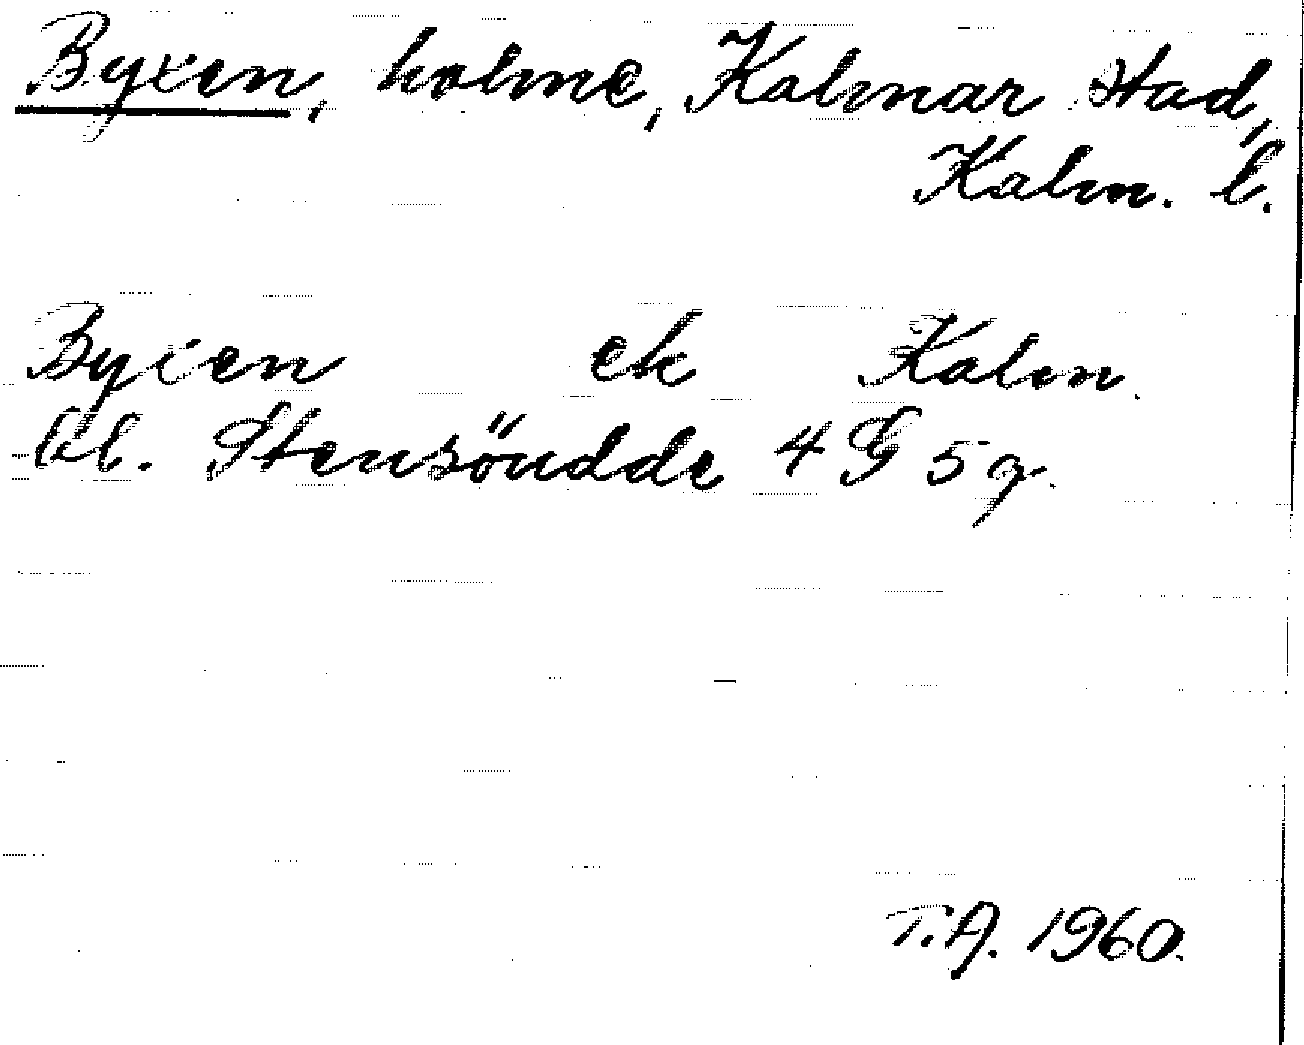 Byxen, holme, Kalmar stad,
Kalm. l.
Byxen ek Kalm.
bl. Stensöudde 4G 5g.
T.A. 1960.